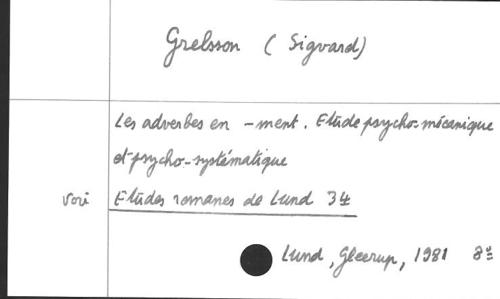 Grelsson (Sigvard)
Les adverbes en -ment. Etude psycho-mécanique
et psycho-systématique
voir Etudes romanes de Lund 34
Lund, Gleerup, 1981 8º